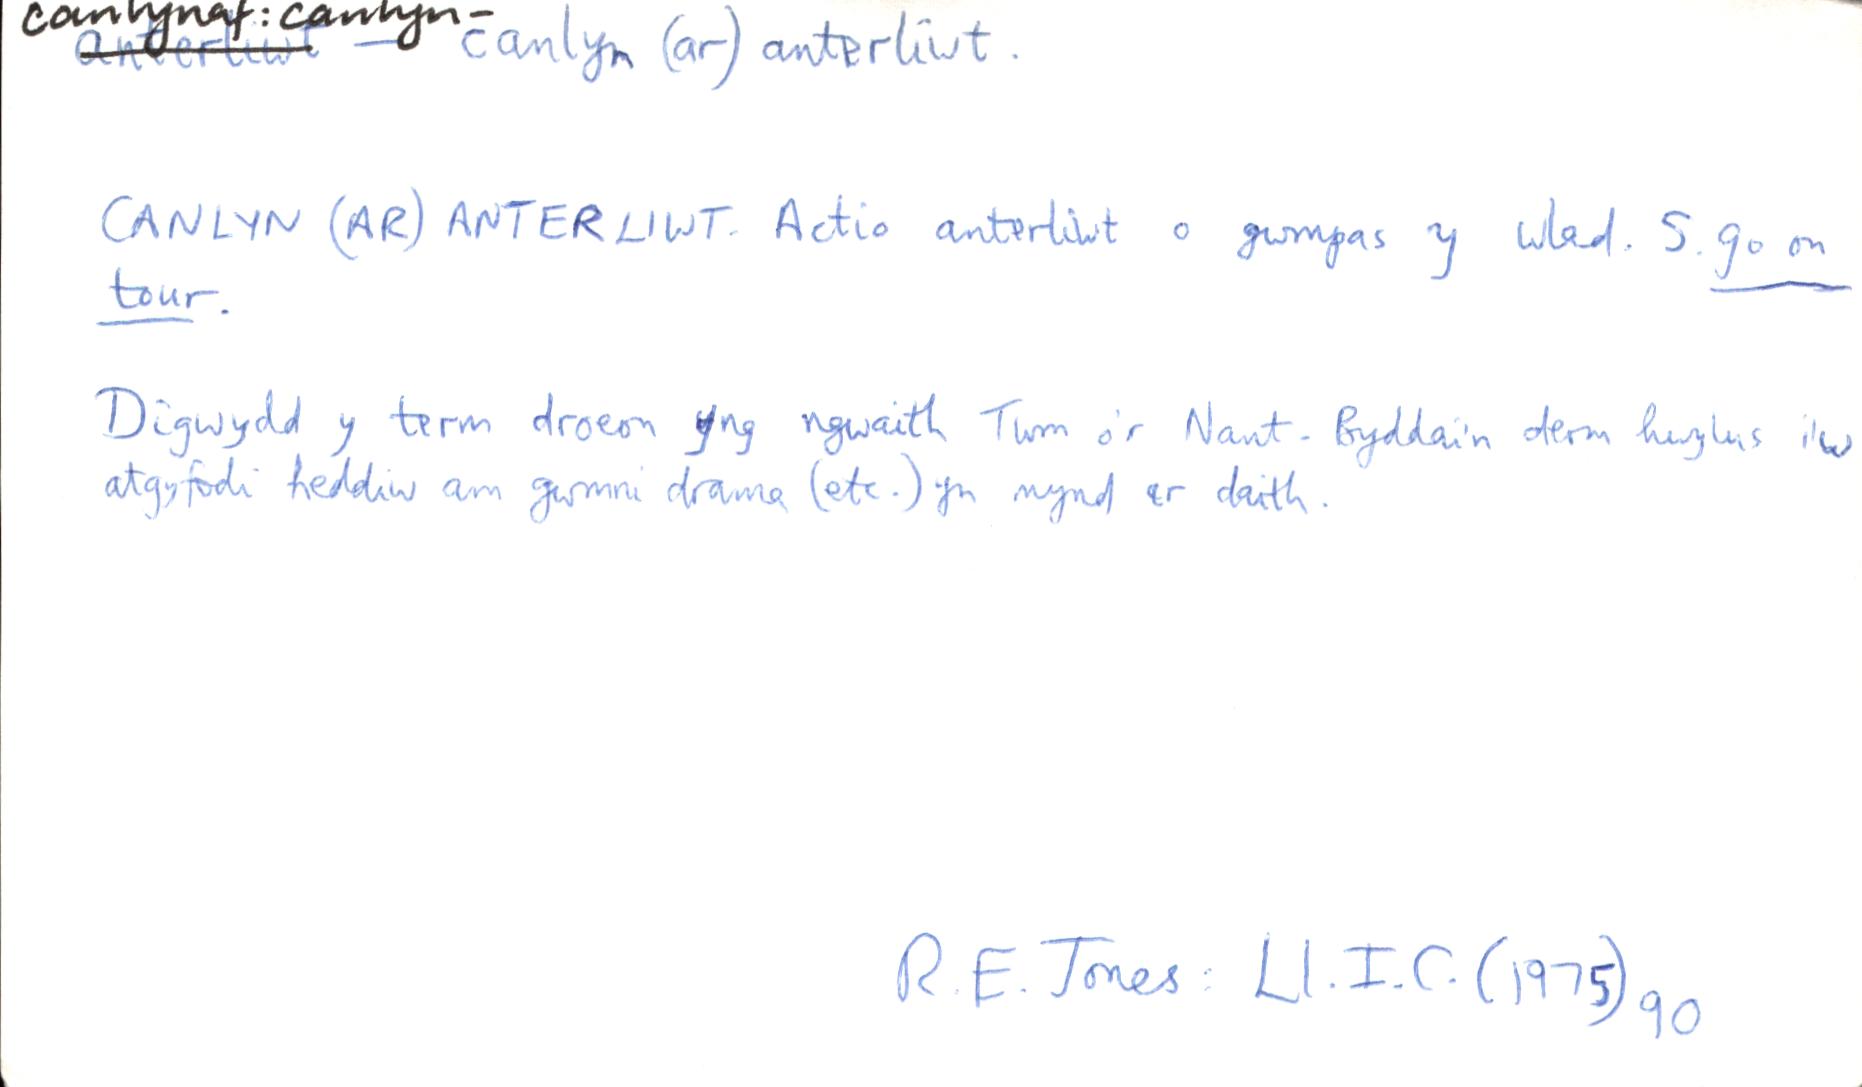 canlynaf: canlyn-
anterliwt — canlyn (ar) anterliwt.
CANLYN (AR) ANTERLIWT. Actio anterliwt o gwmpas y wlad. S. go on
tour.
Digwydd y term droeon yng ngwaith Twm o'r Nant. Byddai'n derm hwylus i'w
atgyfodi heddiw am gwmni drama (etc.) yn mynd ar daith.
R.E. Jones: Ll.I.C. (1975) 90